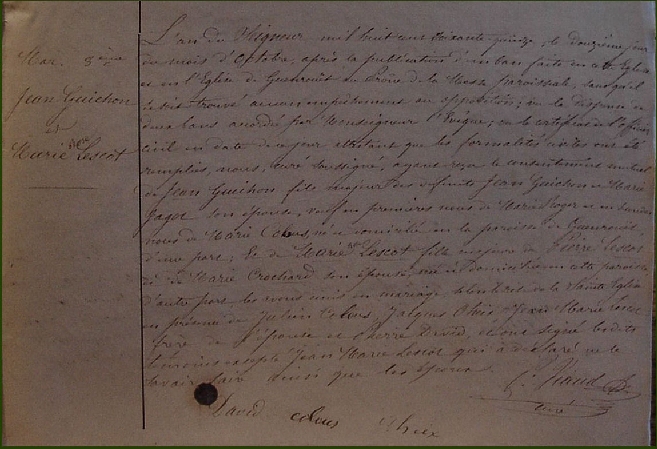 Mar. 8ème
Jean Guichon
et
Marie Lescot
L'an du Seigneur mil huit cent soixante quinze, le douzième jour
du mois d'Octobre, après la publication d'un ban faite en cette Eglise
et en l'Eglise de Guenrouët au Prône de la Messe paroissiale, sans qu'il
se soit trouvé aucun empêchement ou opposition; vu la dispense de
deux bans accordée par Monseigneur l'Evêque; vu le certificat de l'officier
civil en date de ce jour attestant que les formalités civiles ont été
remplies, nous, curé soussigné, ayant reçu le consentement mutuel
de Jean Guichon fils majeur des défunts Jean Guichon et Marie
Jagot son épouse, veuf en premières noces de Marie Roger et en
noces de Marie né et domicilié en la paroisse de Guenrouët
d'une part; et de Marie Lescot fille majeure de Pierre Lescot
et de Marie Crochard son épouse, née et domiciliée en cette paroisse
d'autre part les avons unis en mariage, selon le rit de la Sainte Eglise
en présence de Julien Jacques Jean Marie Lescot
frère de l'épouse et Pierre David, et ont signé lesdits
témoins excepté Jean Marie Lescot qui a déclaré ne le
savoir faire ainsi que les époux.
David
curé